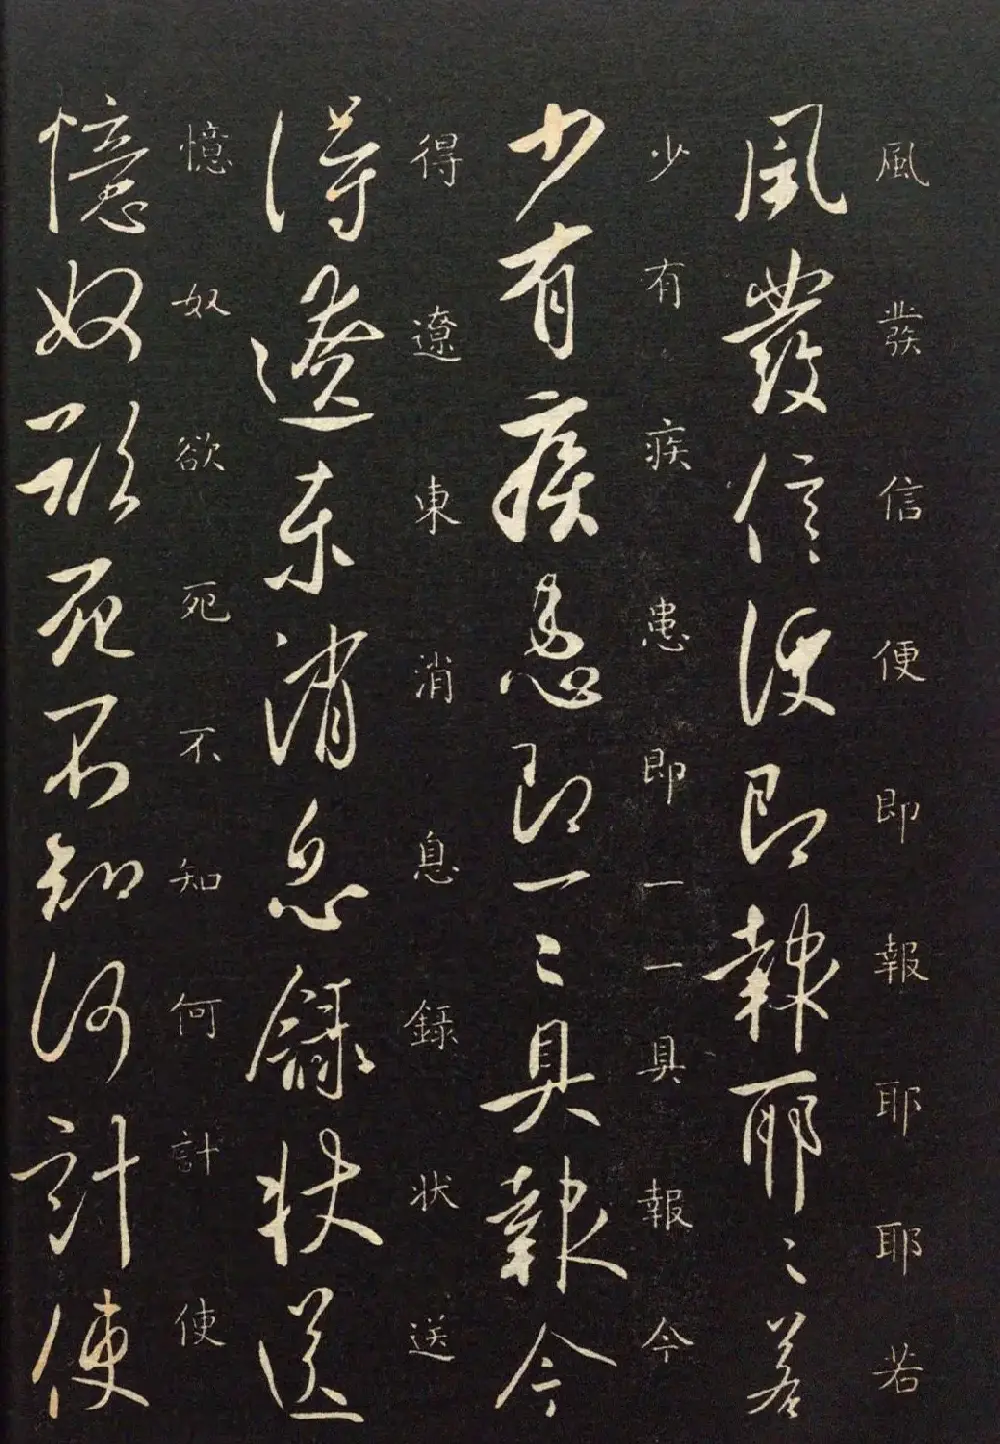 風發信便即報耶耶若
風發信便即報耶〻若
少有疾患即一一具報今
少有疾患即一〻具報今
得遼東消息錄状送
得遼東消息錄状送
憶奴欲死不知何計使
憶奴欲死不知何計使